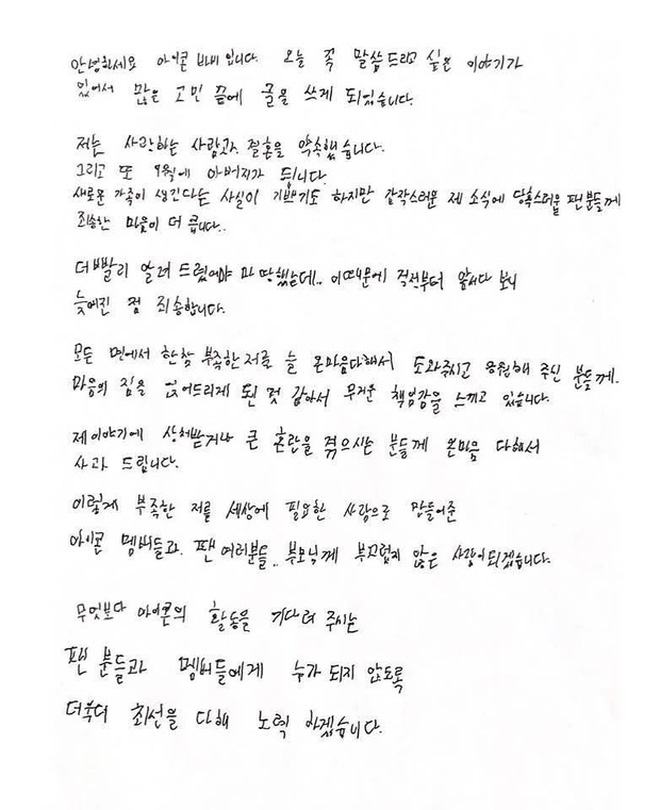 안녕하세요 아이콘 바비입니다. 오늘 꼭 말씀드리고 싶은 이야기가
있어서 많은 고민 끝에 글을 쓰게 되었습니다.
저는 사랑하는 사람과 결혼을 약속했습니다.
그리고 또 9월에 아버지가 됩니다
새로운 가족이 생긴다는 사실이 기쁘기도 하지만 갑작스러운 제 소식에 당혹스러울 팬분들께
죄송한 마음이 더 큽니다..
더 빨리 알려 드렸어야 마땅했는데.. 이 때문에 걱정부터 앞서다 보니
늦어진 점 죄송합니다.
모든 면에서 한참 부족한 저를 늘 온마음다해서 도와주시고 응원해 주신 분들께.
마음의 짐을 얹어드리게 된 것 같아서 무거운 책임감을 느끼고 있습니다.
제 이야기에 상처받거나 큰 혼란을 겪으시는 분들께 온마음 다해서
사과 드립니다.
이렇게 부족한 저를 세상에 필요한 사람으로 만들어준
아이콘 멤버들과 팬 여러분들.. 부모님께 부끄럽지 않은 사람이 되겠습니다.
무엇보다 아이콘의 활동을 기다려 주시는
팬 분들과 멤버들에게 누가 되지 않도록
더욱더 최선을 다해 노력 하겠습니다.